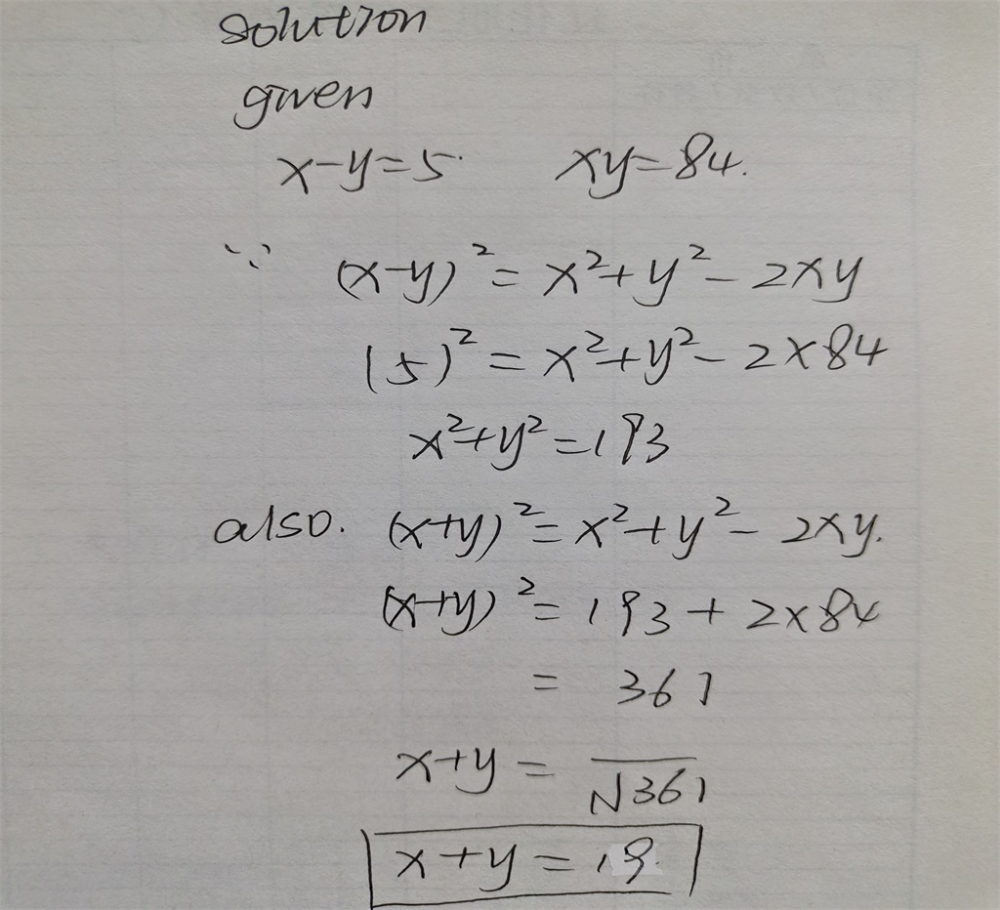 solution
given
x-y=5. xy=84.
∵ (x-y)²=x²+y²-2xy
(5)²=x²+y²-2×84
x²+y²=193
also. (x+y)²=x²+y²-2xy.
(x+y)²=193+2×84
= 361
x+y=√361
x+y=19